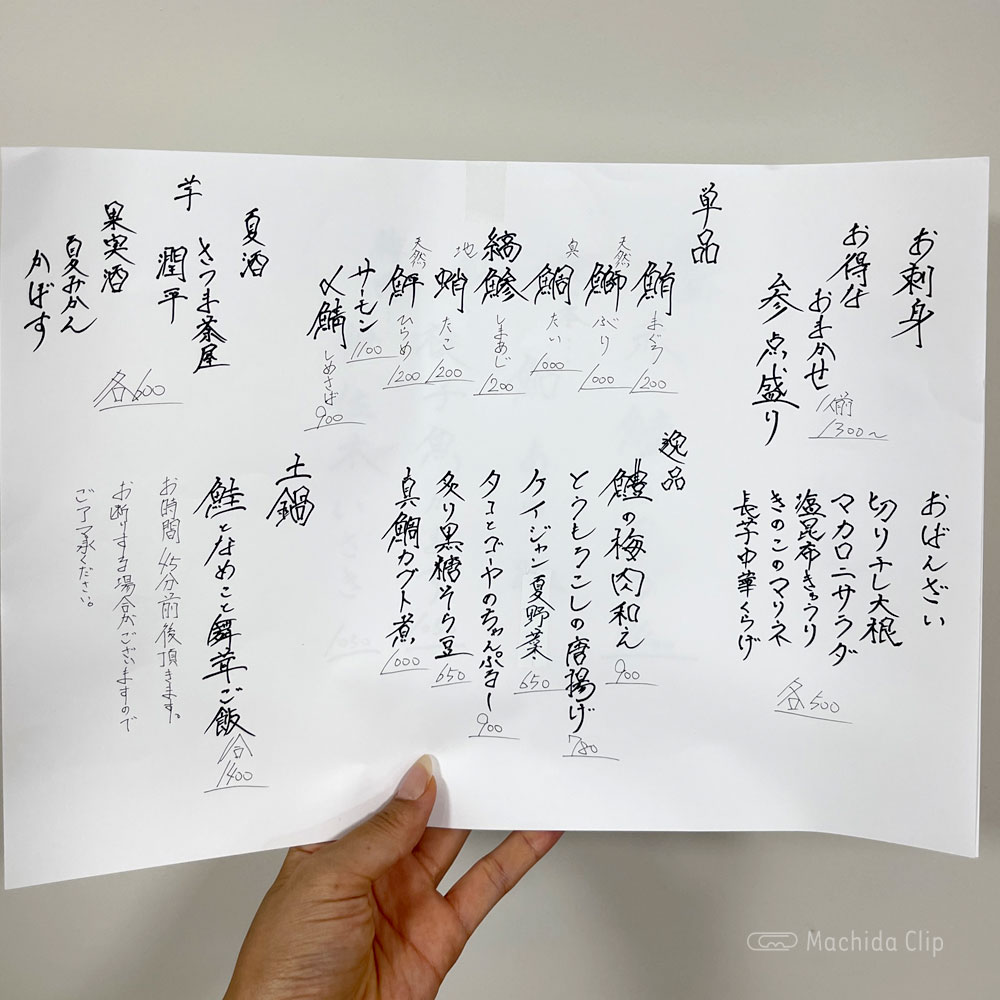 お刺身
お得な
おまかせ
参点盛り
1人前
1300〜
単品
鮪
まぐろ
1200
天然
鰤
ぶり
1000
真
鯛
たい
1000
縞
鯵
しまあじ
1200
地
蛸
たこ
1200
天然
鮃
ひらめ
1200
サーモン
1100
〆鯖
しめさば
900
夏酒
芋
さつま茶屋
潤平
果実酒
夏みかん
かぼす
各600
おばんざい
切り干し大根
マカロニサラダ
塩昆布きゅうり
きのこのマリネ
長芋中華くらげ
各500
逸品
鱧の梅肉和え
900
とうもろこしの唐揚げ
780
ケイジャン夏野菜
650
タコとゴーヤのちゃんぷるー
900
炙り黒糖そら豆
650
真鯛カブト煮
1000
土鍋
鮭となめこと舞茸ご飯
1合
1400
お時間45分前後頂きます。
お断りする場合がございますので
ご了承ください。
Machida Clip